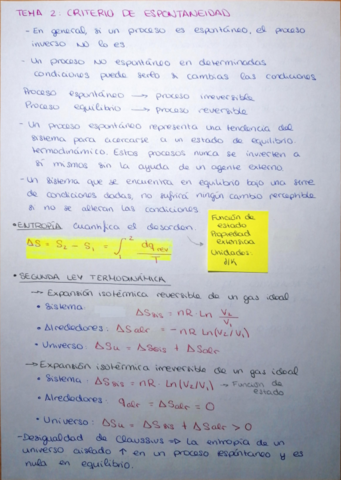 TEMA 2: CRITERIO DE ESPONTANEIDAD
- En general, si un proceso es espontáneo, el proceso
inverso NO lo es
- Un proceso NO espontáneo en determinadas
condiciones puede serlo si cambias las condiciones
Proceso espontáneo → proceso irreversible
Proceso equilibrio → proceso reversible
- Un proceso espontáneo representa una tendencia del
sistema para acercarse a un estado de equilibrio
termodinámico. Estos procesos nunca se invierten a
sí mismos sin la ayuda de un agente externo
- Un sistema que se encuentra en equilibrio bajo una serie
de condiciones dadas, no sufrirá ningún cambio perceptible
si no se alteran las condiciones
• ENTROPÍA cuantifica el desorden
ΔS = S2 - S1 = ∫₁² dq rev / T
Función de
estado
Propiedad
extensiva
Unidades:
J/K
• SEGUNDA LEY TERMODINÁMICA
→ Expansión isotérmica reversible de un gas ideal
• Sistema: ΔSsis = nR·Ln V2/V1
• Alrededores: ΔSalr = -nR·Ln(V2/V1)
• Universo: ΔSu = ΔSsis + ΔSalr
→ Expansión isotérmica irreversible de un gas ideal
• Sistema: ΔSsis = nR·Ln(V2/V1) → Función de
estado
• Alrededores: qalr = ΔSalr = 0
• Universo: ΔSu = ΔSsis + ΔSalr > 0
- Desigualdad de Claussius ⇒ La entropía de un
universo aislado ↑ en un proceso espontáneo y es
nula en equilibrio.